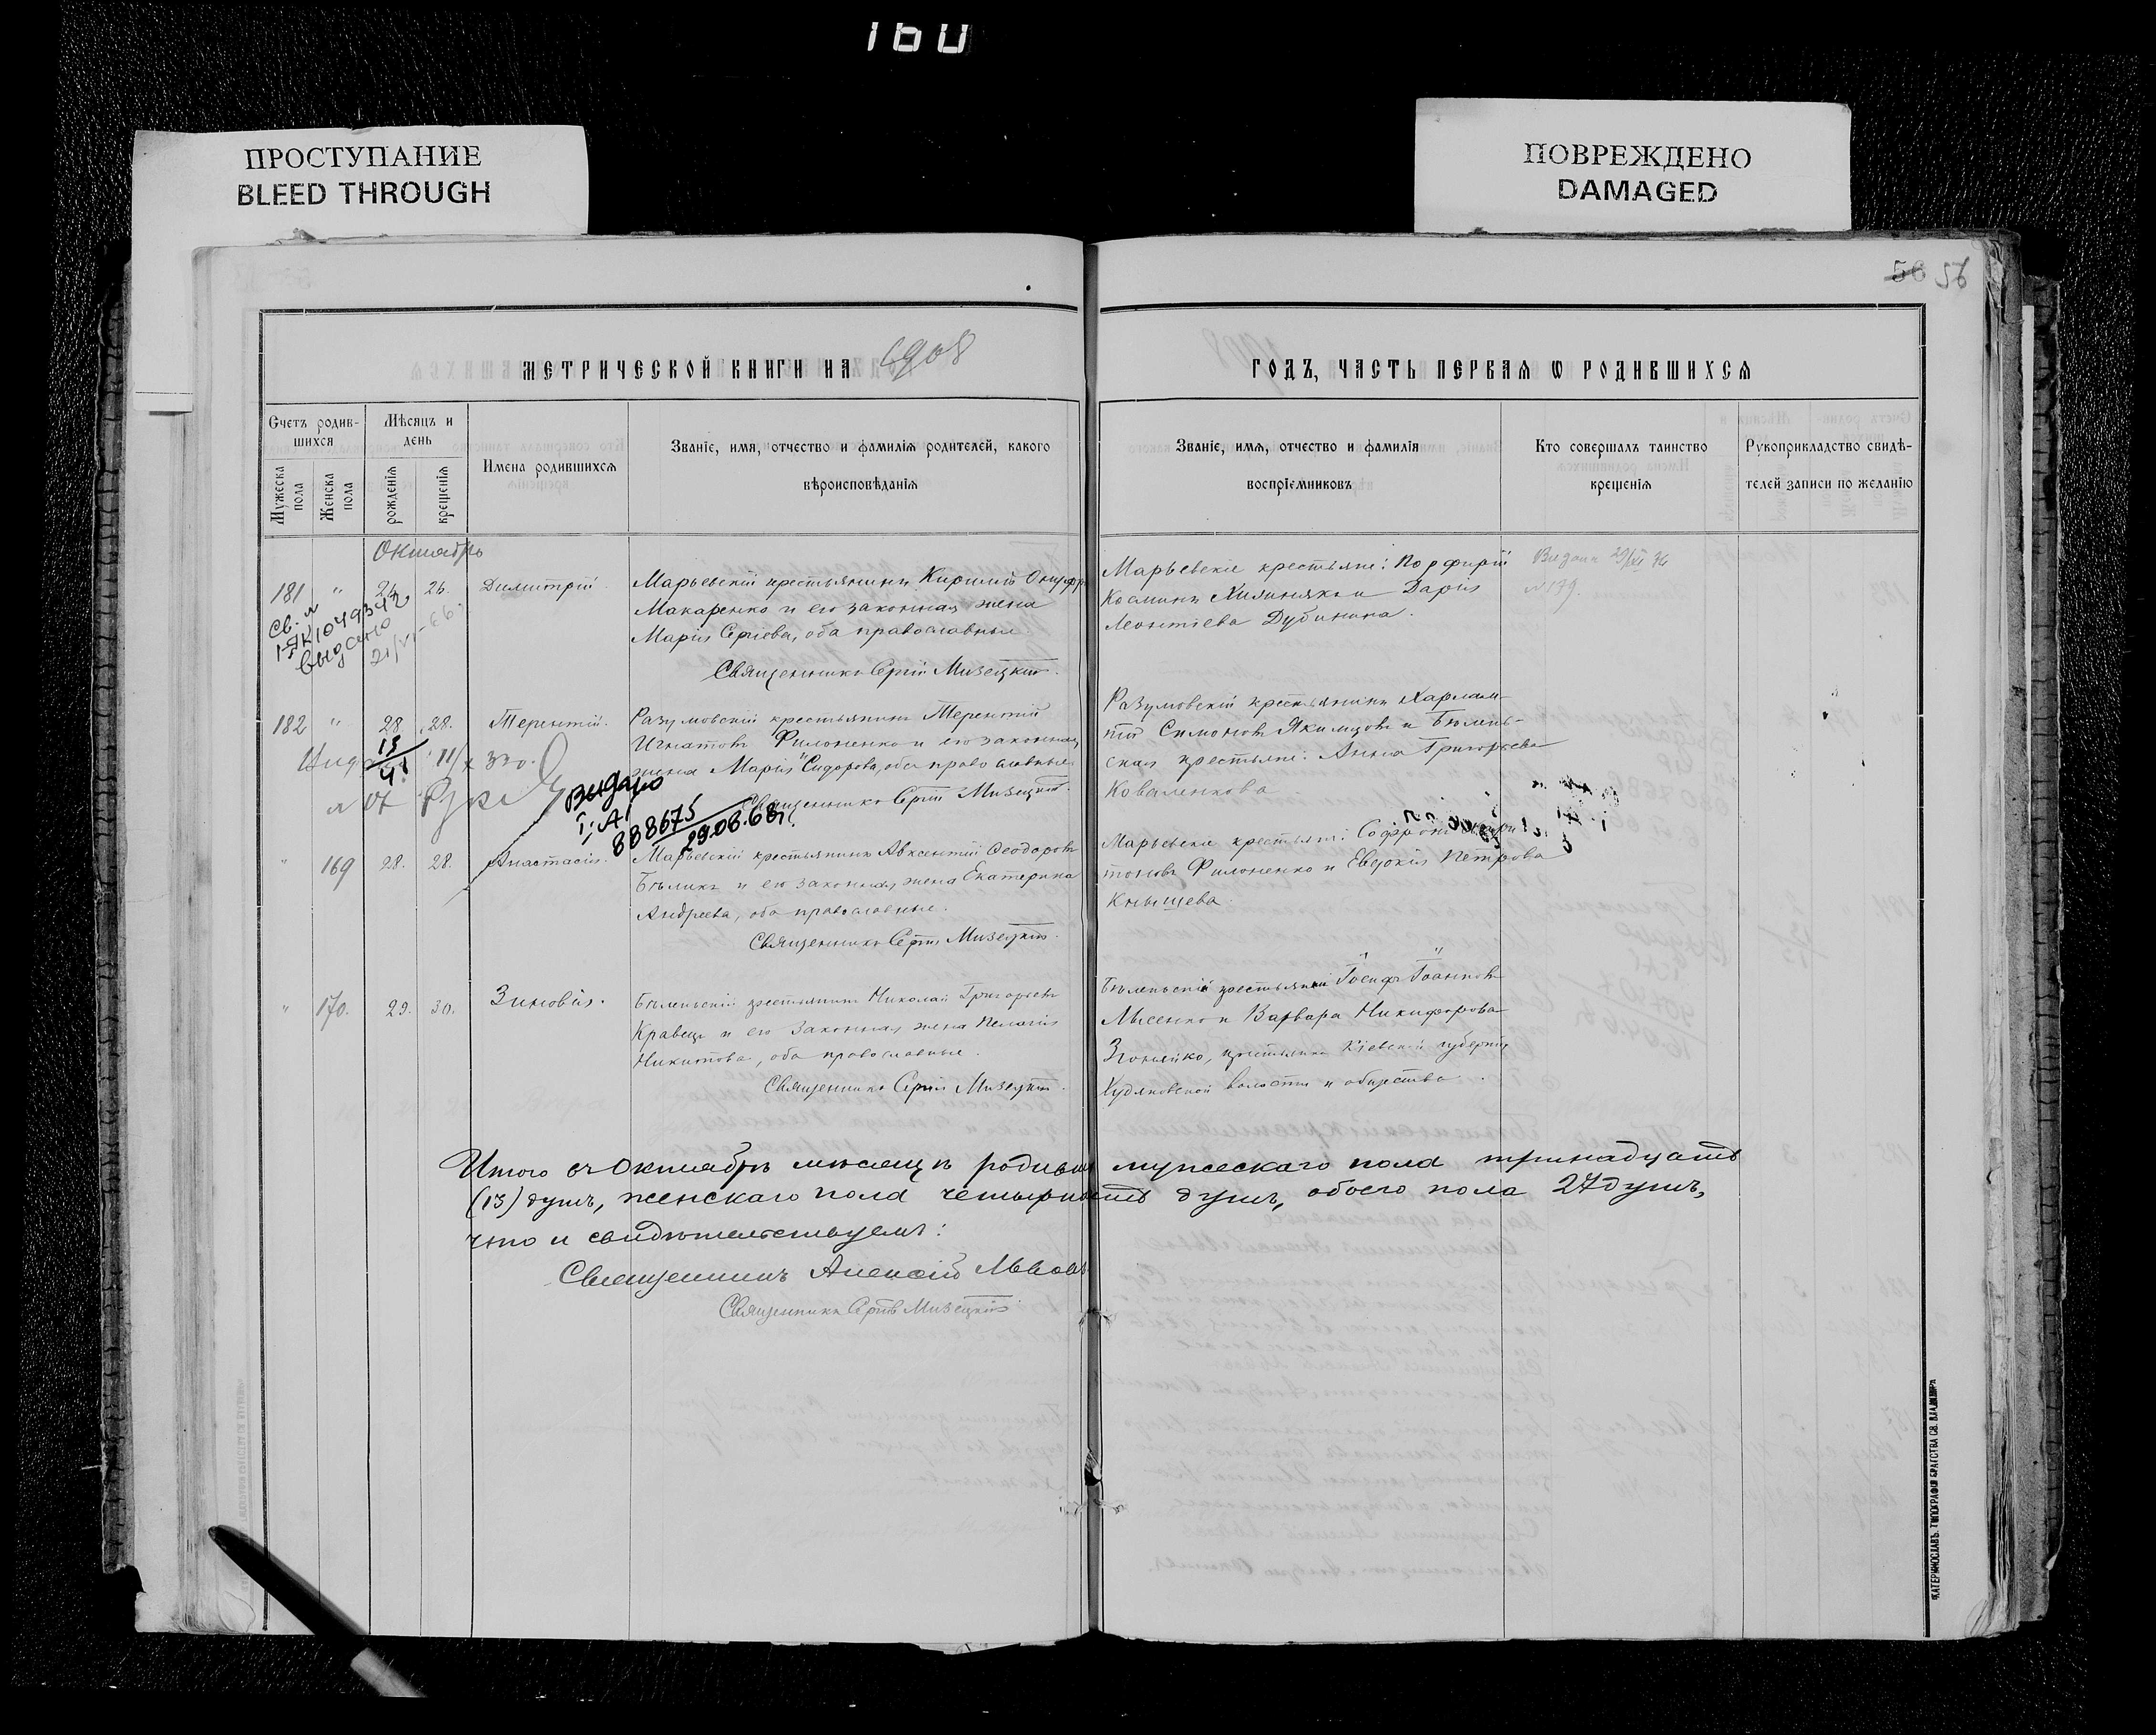 160
ПРОСТУПАНИЕ
BLEED THROUGH
ПОВРЕЖДЕНО
DAMAGED
56 56
МЕТРИЧЕСКОЙ КНИГИ НА 1908
ГОДЪ, ЧАСТЬ ПЕРВАЯ Ѡ РОДИВШИХСЯ
Счетъ родив-
шихся
Мужеска пола
Женска пола
Мѣсяцъ и
день
рожденія
крещенія
Имена родившихся
Званіе, имя, отчество и фамилія родителей, какого
вѣроисповѣданія
Званіе, имя, отчество и фамилія
воспріемниковъ
Кто совершалъ таинство
крещенія
Рукоприкладство свидѣ-
телей записи по желанію
Октябрь
181 " 24. 26. Димитрій.
Марьевскій крестьянинъ Кириллъ Онуфр
Макаренко и его законная жена
Марія Сергіева, оба православные
Священникъ Сергій Мизецкій.
Марьевскіе крестьяне: Порфирій
Косминъ и Дарія
Леонтіева Дубинина.
Видана 29/XI 36
№ 179.
Св. л
І-ЯК 1049342
выдано
21/VI-66.
182 " 28. 28. Терентій.
Разумовскій крестьянинъ Терентій
Игнатовъ Филоненко и его законная
жена Марія Сидорова, оба православные.
Священникъ Сергій Мизецкій.
Разумовскій крестьянинъ Харлам-
пій Симоновъ Якимцовъ и Бѣлень-
ская крестьяне: Анна Григорьева
Коваленкова
видано
888675
29.08.68г.
" 169 28. 28. Анастасія.
Марьевскій крестьянинъ Авксентій Ѳеодоровъ
Бѣликъ и его законная жена Екатерина
Андреева, оба православные.
Священникъ Сергій Мизецкій.
Марьевскіе крестьяне: Софроній
Филоненко и Евдокія Петрова
Кнышева.
" 170. 29. 30. Зиновія.
Бѣленьскій крестьянинъ Николай Григорьевъ
Кравецъ и его законная жена Пелагія
Никитова, оба православные.
Священникъ Сергій Мизецкій.
Бѣленьскій крестьянинъ Іосифъ Іоанновъ
Лысенко и Варвара Никифорова
крестьянка Кіевской губерніи
Худяковской волости и общества.
Итого въ Октябрѣ мѣсяцѣ родилось мужескаго пола тринадцать
(13) душъ, женскаго пола четырнадцать душъ, обоего пола 27 душъ,
что и свидѣтельствуемъ:
Священникъ Алексій Львовъ
Священникъ Сергій Мизецкій
ЕКАТЕРИНОСЛАВЪ. ТИПОГРАФІЯ БРАТСТВА СВ. ВЛАДИМІРА